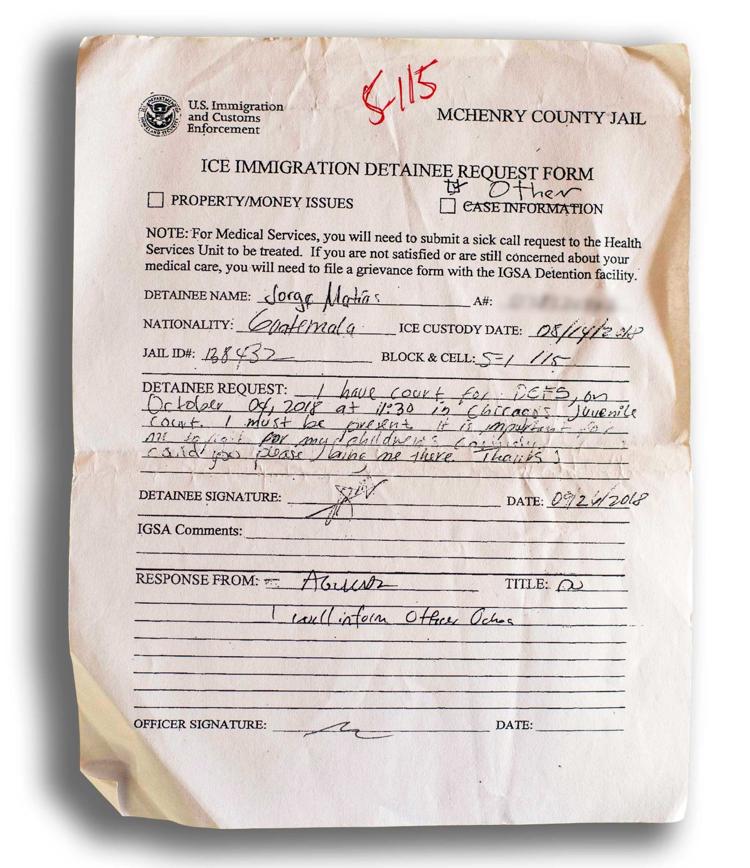 5-115
U.S. Immigration
and Customs
Enforcement
MCHENRY COUNTY JAIL
ICE IMMIGRATION DETAINEE REQUEST FORM
Other
PROPERTY/MONEY ISSUES
CASE INFORMATION
NOTE: For Medical Services, you will need to submit a sick call request to the Health
Services Unit to be treated. If you are not satisfied or are still concerned about your
medical care, you will need to file a grievance form with the IGSA Detention facility.
DETAINEE NAME: Jorge Matias A#:
NATIONALITY: Guatemala ICE CUSTODY DATE: 08/14/2018
JAIL ID#: 138432 BLOCK & CELL: 5-1 115
DETAINEE REQUEST: I have court for DCFS, on
October 04, 2018 at 11:30 in Chicago's Juvenile
court. I must be present it is important for
me for my children's
could you please bring me there. Thanks
DETAINEE SIGNATURE: DATE: 09/24/2018
IGSA Comments:
RESPONSE FROM: TITLE:
I will inform Officer Ochoa
OFFICER SIGNATURE: DATE: